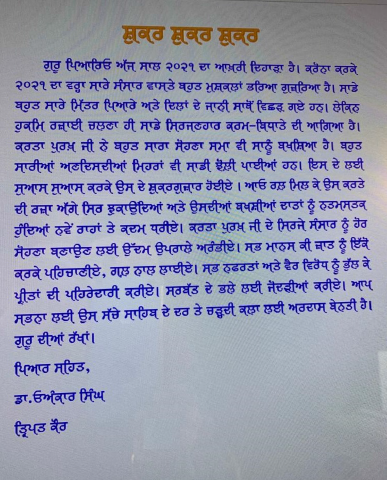 ਸ਼ੁਕਰ ਸ਼ੁਕਰ ਸ਼ੁਕਰ
ਗੁਰੂ ਪਿਆਰਿਓ ਅੱਜ ਸਾਲ ੨੦੨੧ ਦਾ ਆਖ਼ਰੀ ਦਿਹਾੜਾ ਹੈ। ਕਰੋਨਾ ਕਰਕੇ
੨੦੨੧ ਦਾ ਵਰ੍ਹਾ ਸਾਰੇ ਸੰਸਾਰ ਵਾਸਤੇ ਬਹੁਤ ਮੁਸ਼ਕਲਾਂ ਭਰਿਆ ਗੁਜ਼ਰਿਆ ਹੈ। ਸਾਡੇ
ਬਹੁਤ ਸਾਰੇ ਮਿੱਤਰ ਪਿਆਰੇ ਅਤੇ ਦਿਲਾਂ ਦੇ ਜਾਨੀ ਸਾਥੋਂ ਵਿਛੜ ਗਏ ਹਨ। ਲੇਕਿਨ
ਹੁਕਮਿ ਰਜ਼ਾਈ ਚਲਣਾ ਹੀ ਸਾਡੇ ਸਿਰਜਣਹਾਰ ਕਰਮ-ਬਿਧਾਤੇ ਦੀ ਆਗਿਆ ਹੈ।
ਕਰਤਾ ਪੁਰਖ ਜੀ ਨੇ ਬਹੁਤ ਸਾਰਾ ਸੋਹਣਾ ਸਮਾ ਵੀ ਸਾਨੂੰ ਬਖਸ਼ਿਆ ਹੈ। ਬਹੁਤ
ਸਾਰੀਆਂ ਅਣਦਿਸਦੀਆਂ ਮਿਹਰਾਂ ਵੀ ਸਾਡੀ ਝੋਲ਼ੀ ਪਾਈਆਂ ਹਨ। ਇਸ ਦੇ ਲਈ
ਸੁਆਸ ਸੁਆਸ ਕਰਕੇ ਉਸ ਦੇ ਸ਼ੁਕਰਗੁਜ਼ਾਰ ਹੋਈਏ। ਆਓ ਰਲ਼ ਮਿਲ ਕੇ ਉਸ ਕਰਤੇ
ਦੀ ਰਜ਼ਾ ਅੱਗੇ ਸਿਰ ਝੁਕਾਉਂਦਿਆਂ ਅਤੇ ਉਸਦੀਆਂ ਬਖਸ਼ੀਆਂ ਦਾਤਾਂ ਨੂੰ ਨਤਮਸਤਕ
ਹੁੰਦਿਆਂ ਨਵੇਂ ਰਾਹਾਂ ਤੇ ਕਦਮ ਧਰੀਏ। ਕਰਤਾ ਪੁਰਖ ਜੀ ਦੇ ਸਿਰਜੇ ਸੰਸਾਰ ਨੂੰ ਹੋਰ
ਸੋਹਣਾ ਬਣਾਉਣ ਲਈ ਉੱਦਮ ਉਪਰਾਲੇ ਅਰੰਭੀਏ। ਸਭ ਮਾਨਸ ਕੀ ਜਾਤ ਨੂੰ ਇੱਕੋ
ਕਰਕੇ ਪਹਿਚਾਣੀਏ, ਗਲ਼ ਨਾਲ ਲਾਈਏ। ਸਭ ਨਫਰਤਾਂ ਅਤੇ ਵੈਰ ਵਿਰੋਧ ਨੂੰ ਭੁੱਲ ਕੇ
ਪ੍ਰੀਤਾਂ ਦੀ ਪਹਿਰੇਦਾਰੀ ਕਰੀਏ। ਸਰਬੱਤ ਦੇ ਭਲੇ ਲਈ ਜੋਦੜੀਆਂ ਕਰੀਏ। ਆਪ
ਸਭਨਾ ਲਈ ਉਸ ਸੱਚੇ ਸਾਹਿਬ ਦੇ ਦਰ ਤੇ ਚੜ੍ਹਦੀ ਕਲਾ ਲਈ ਅਰਦਾਸ ਬੇਨਤੀ ਹੈ।
ਗੁਰੂ ਦੀਆਂ ਰੱਖਾਂ।
ਪਿਆਰ ਸਹਿਤ,
ਡਾ.ਓਅੰਕਾਰ ਸਿੰਘ
ਤ੍ਰਿਪਤ ਕੌਰ